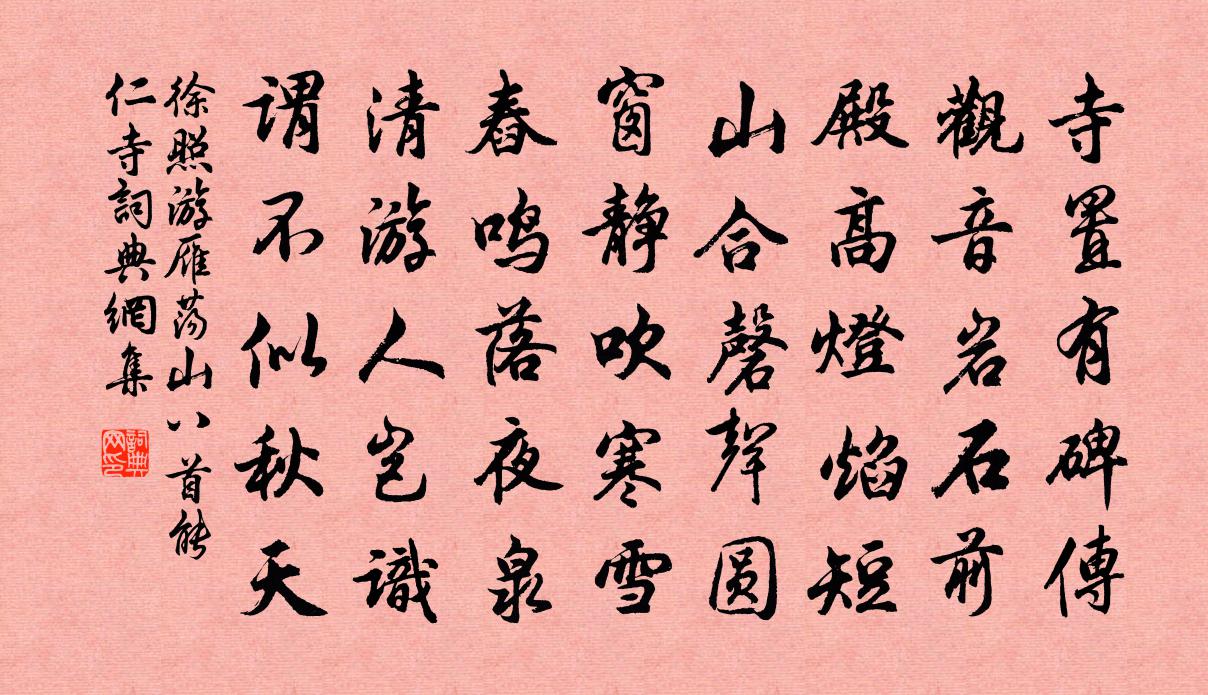 寺置有碑傳
觀音岩石前
殿高燈焰短
山合磬聲圓
窗静吹寒雪
舂鸣落夜泉
清游人豈識
謂不似秋天
徐照游雁荡山八首能
仁寺詞典網集
詞典
网印